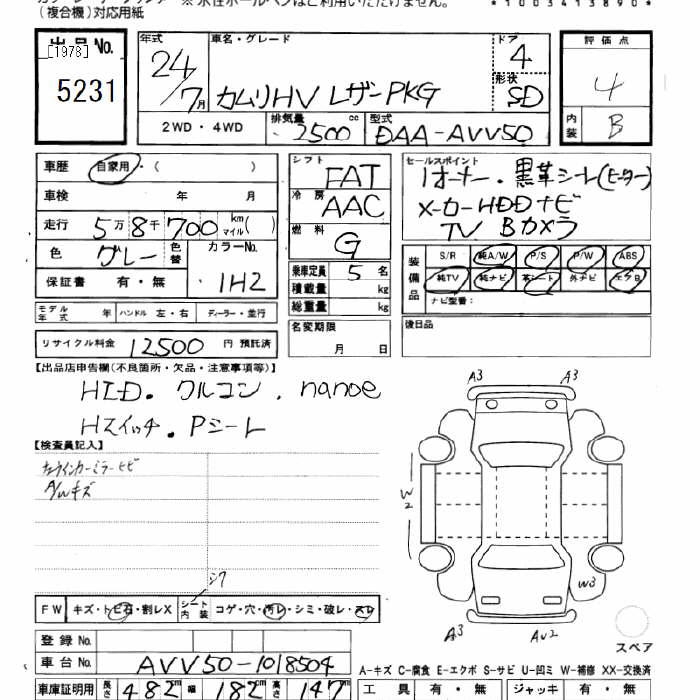 (複合機)対応用紙 ※水性ボールペンはご利用いただけません。
*1003413890*
出品No.
[1978]
5231
年式 24/7月
車名・グレード カムリHV レザーPKG
ドア 4
形状 SD
2WD・4WD
排気量 2500 cc
型式 DAA-AVV50
評価点 4
内装 B
車歴 自家用・( )
車検 年 月
走行 5万8千700 km マイル( )
色 グレー 色替 カラーNo. 1H2
保証書 有・無
モデル年式 年 ハンドル 左・右 ディーラー・並行
リサイクル料金 12500 円 預託済
シフト FAT
冷房 AAC
燃料 G
乗車定員 5 名
積載量 kg
総重量 kg
名変期限
月 日
セールスポイント
1オーナー.黒革シート(ヒーター)
メーカーHDDナビ
TV Bカメラ
装備品
S/R 純A/W P/S P/W ABS
純TV 純ナビ 革シート 外ナビ エアB
ナビ型番:
後日品
【出品店申告欄(不良箇所・欠品・注意事項等)】
HID. クルコン. nanoe
Hスイッチ. Pシート
【検査員記入】
A/Wキズ
シワ
FW キズ・トビ石・割レX
シート内装 コゲ・穴・汚レ・シミ・破レ・スレ
登録No.
車台No. AVV50-1018504
車庫証明用 長さ 482 幅 182 高さ 147
A3 A3
W2
W3
A3 AW2
スペア
A-キズ C-腐食 E-エクボ S-サビ U-凹ミ W-補修 XX-交換済
工具 有・無 ジャッキ 有・無